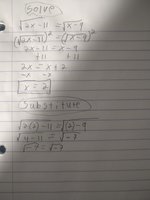 Solve
√2x-11 = √x-9
(√2x-11)² = (√x-9)²
2x-11 = x-9
+11 +11
2x = x+2
-x -x
x = 2
Substitute
√2(2)-11 = √(2)-9
√4-11 = √-7
√-7 = √-7